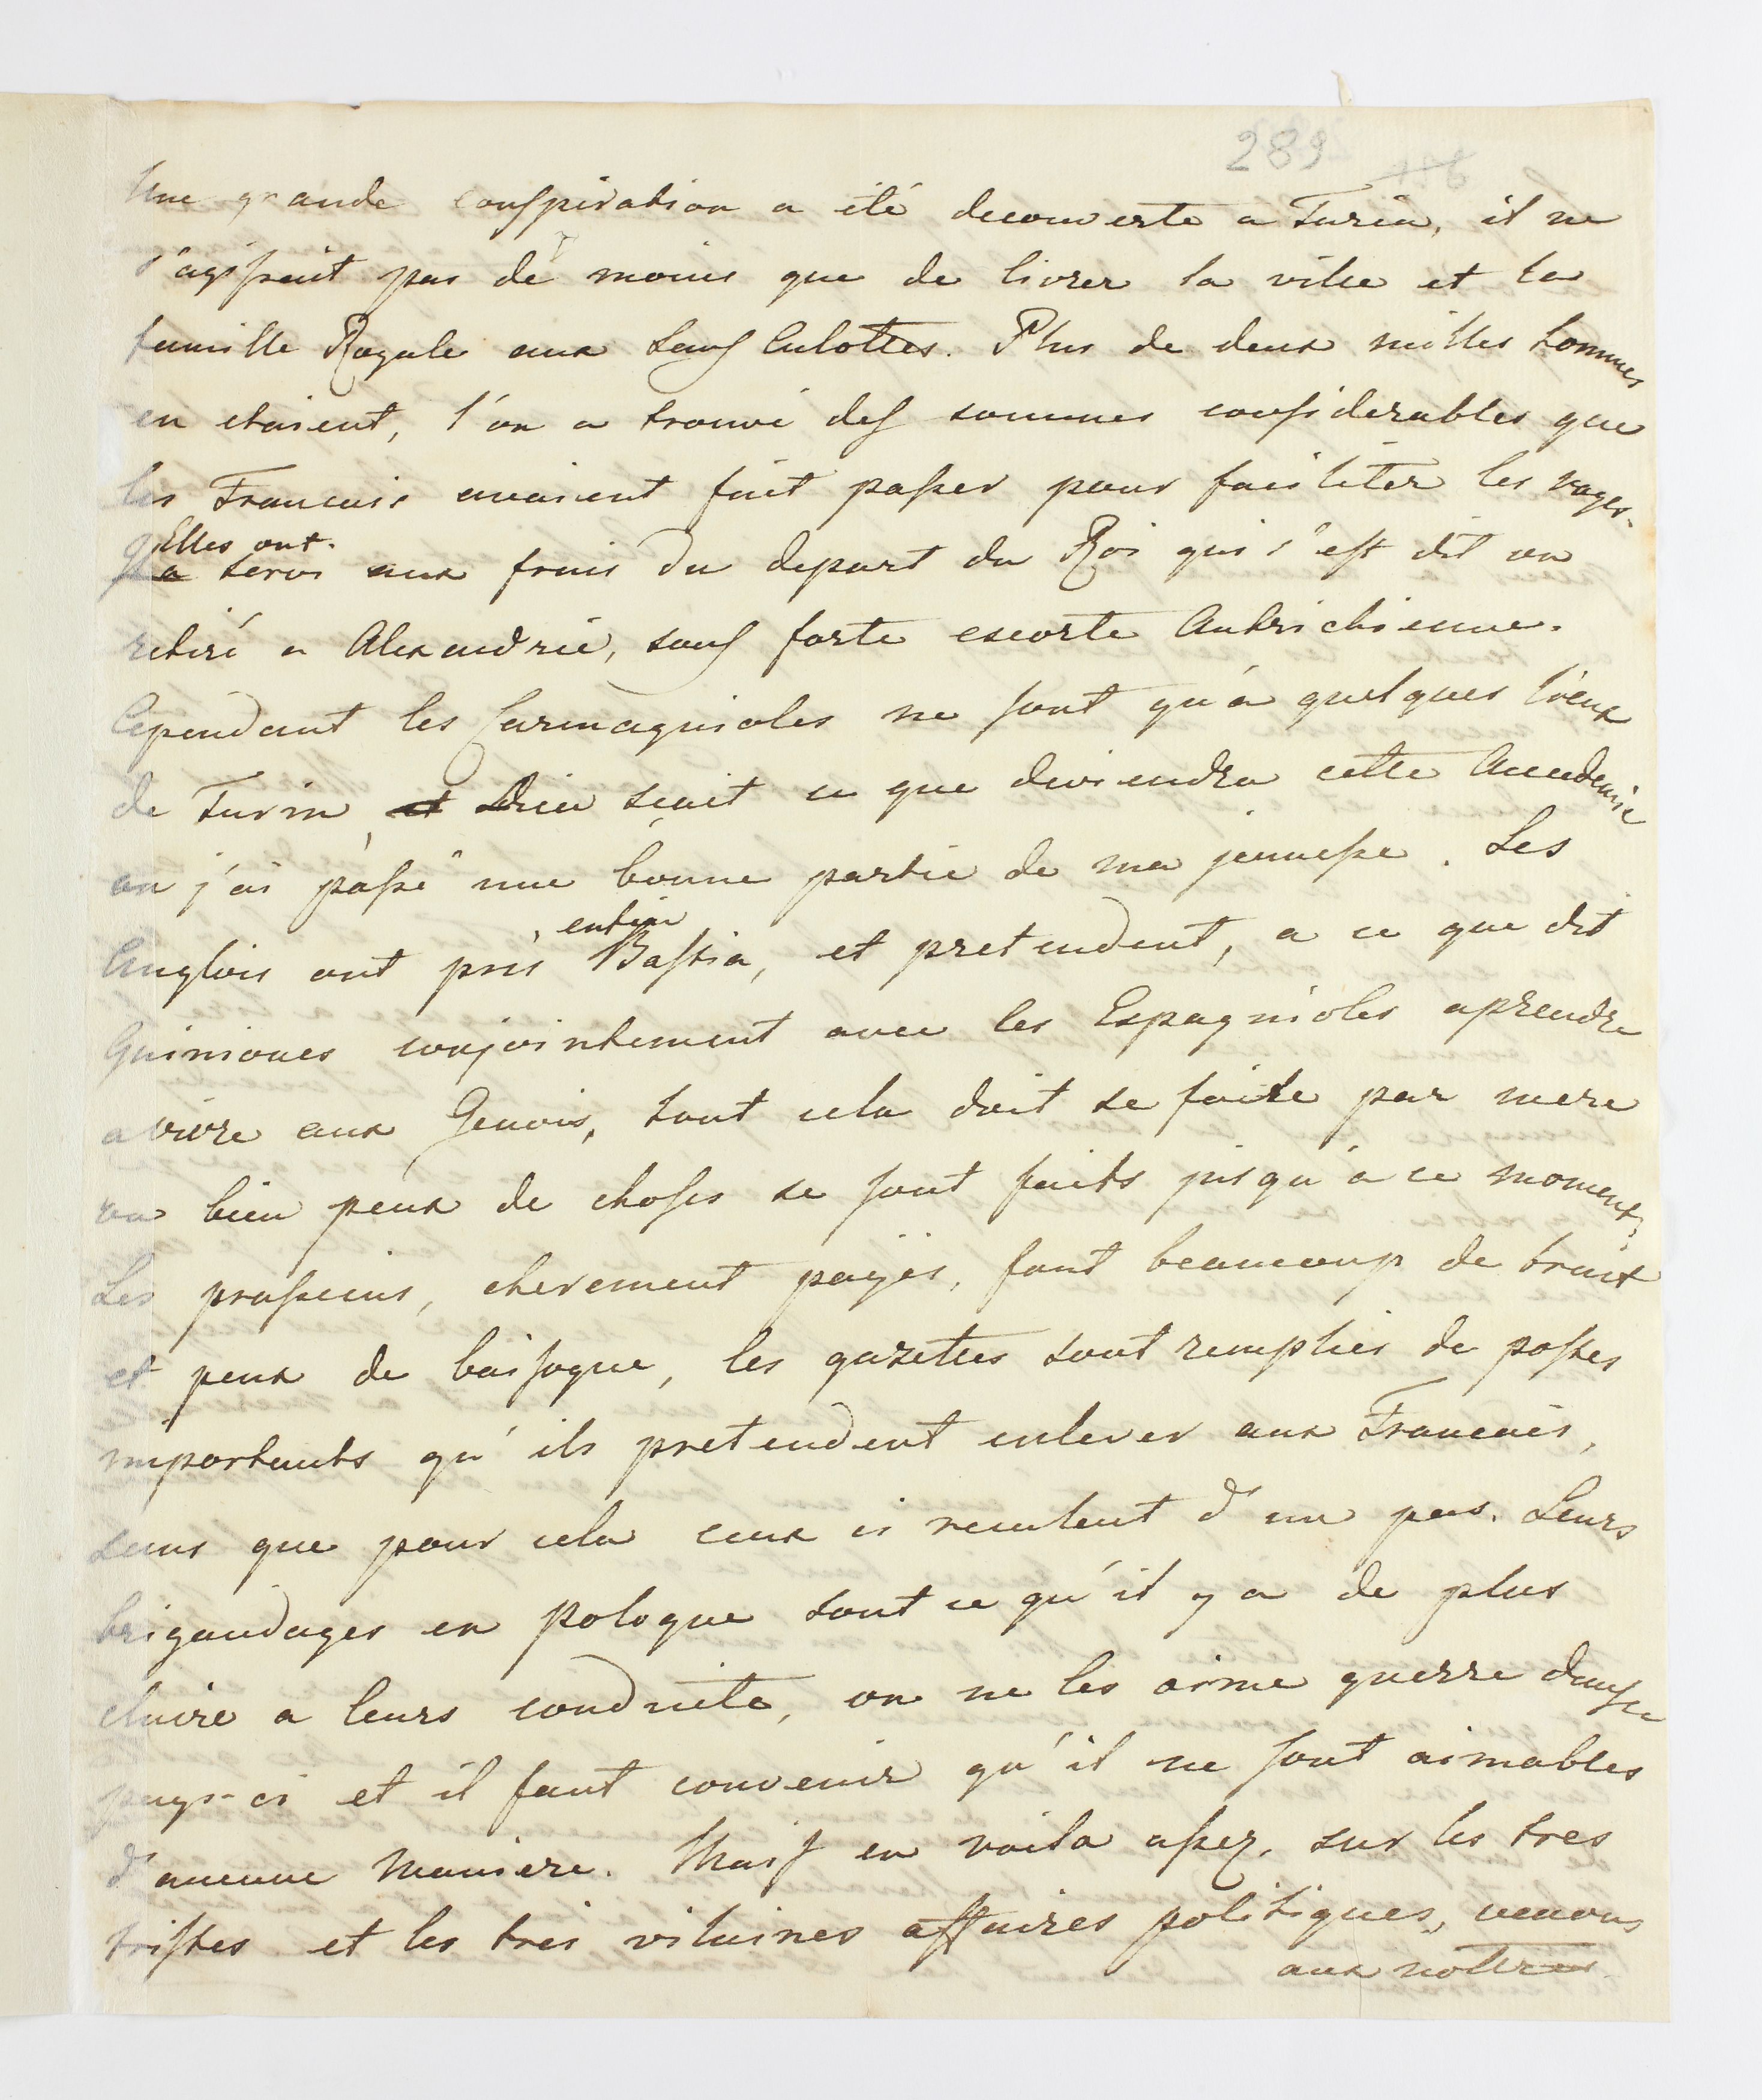 289
Une grande conspiration a été decouverte a Turin, il ne
s'agissait pas de moins que de livrer la ville et la
famille Royale aux Sans Culottes. Plus de deux milles hommes
en etaient, l'on a trouvé des sommes considerables que
les Francais avaient fait passer pour faciliter les voyes.
Elles ont
a servi aux frais du depart du Roi qui s'est dit on
retiré a Alexandrie, sous forte escorte Autrichienne.
Cependant les Carmagnioles ne sont qu'a quelques lieux
de Turin, et Dieu scait ce que deviendra cette Academie
ou j'ai passé une bonne partie de ma jeunesse. Les
enfin
Anglois ont pris Bastia, et pretendent, a ce que dit
Guiniones conjointement avec les Espagnioles aprendre
a vivre aux Genois, tout cela doit se faire par mere
ou bien peux de choses se sont faits jusqu'a ce moment;
Les prussiens, cherement payés, font beaucoup de bruit
et peux de baisogne, les gazettes sont remplies de postes
importants qu'ils pretendent enlever aux Francais,
sans que pour cela ceux ci reculent d'un pas. Leurs
brigandages en pologne sont ce qu'il y a de plus
claire a leurs conduite, on ne les aime guerre dans ce
pays-ci et il faut convenir qu'il ne sont aimables
d'aucune maniere. Mais en voila assez, sur les tres
tristes et les tres vilaines affaires politiques, venons
aux nottres